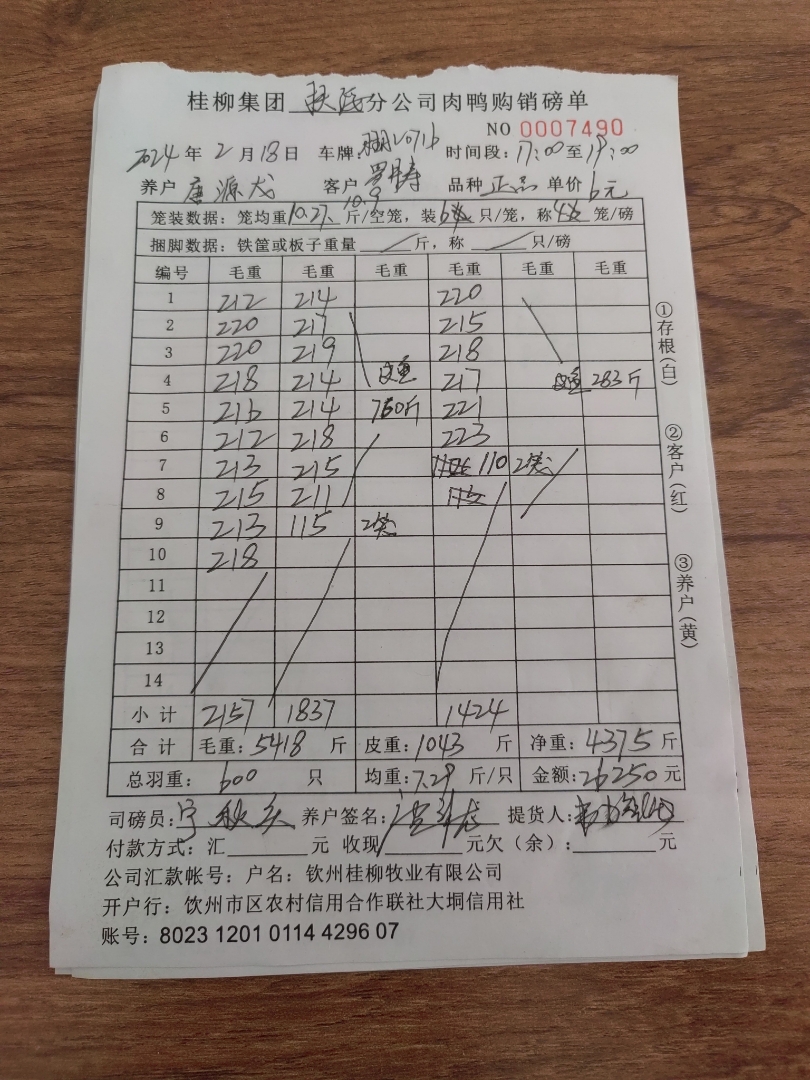 桂柳集团 分公司肉鸭购销磅单
NO 0007490
2024年2月18日 车牌: 时间段:17:00至19:00
养户 唐源戊 客户 罗寿 品种 正品 单价 6元
10.9
笼装数据:笼均重10.27斤/空笼,装6只/笼,称4笼/磅
捆脚数据:铁筐或板子重量 / 斤,称 / 只/磅
编号 毛重 毛重 毛重 毛重 毛重 毛重
1 212 214 220
2 220 217 215
3 220 219 218
4 218 214 皮重 217 皮重 283斤
5 216 214 760斤 221
6 212 218 223
7 213 215 110 2笼
8 215 211
9 213 115 2笼
10 218
11
12
13
14
小计 2157 1837 1424
合计 毛重:5418斤 皮重:1043斤 净重:4375斤
总羽重:600只 均重:7.29斤/只 金额:26250元
司磅员: 养户签名: 提货人:
付款方式:汇 元 收现 元欠(余): 元
公司汇款帐号:户名:钦州桂柳牧业有限公司
开户行:钦州市区农村信用合作联社大垌信用社
账号:8023 1201 0114 4296 07
①存根(白)
②客户(红)
③养户(黄)